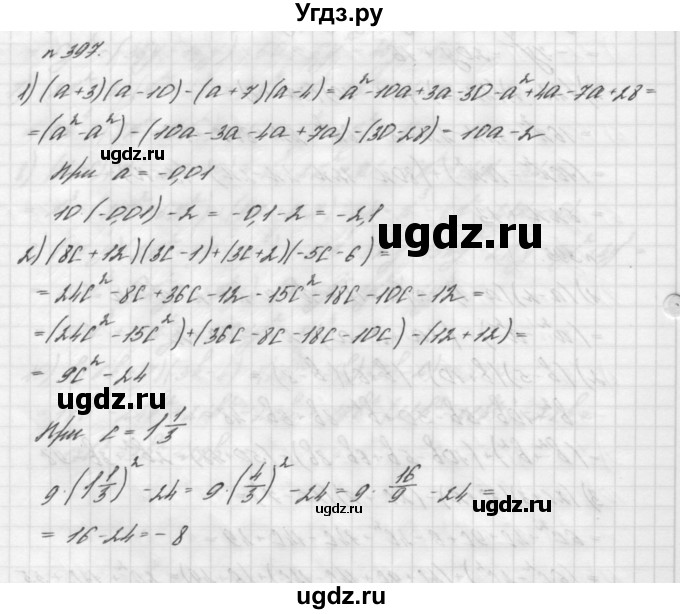 Угдз.ру
n 397.
1) (a+3)(a-10)-(a+7)(a-4)=a²-10a+3a-30-a²+4a-7a+28=
=(a²-a²)-(10a-3a-4a+7a)-(30-28)=-10a-2
ugdz.ru
При a=-0,01
10(-0,01)-2=-0,1-2=-2,1
ugdz.ru
ugdz.ru
2) (8c+12)(3c-1)+(3c+2)(-5c-6)=
=24c²-8c+36c-12-15c²-18c-10c-12=
=(24c²-15c²)+(36c-8c-18c-10c)-(12+12)=
=9c²-24
ugdz.ru
ugdz.ru
При c=1 1/3
9·(1 1/3)²-24=9·(4/3)²-24=9·16/9-24=
ugdz.ru
ugdz.ru
=16-24=-8
ugdz.ru